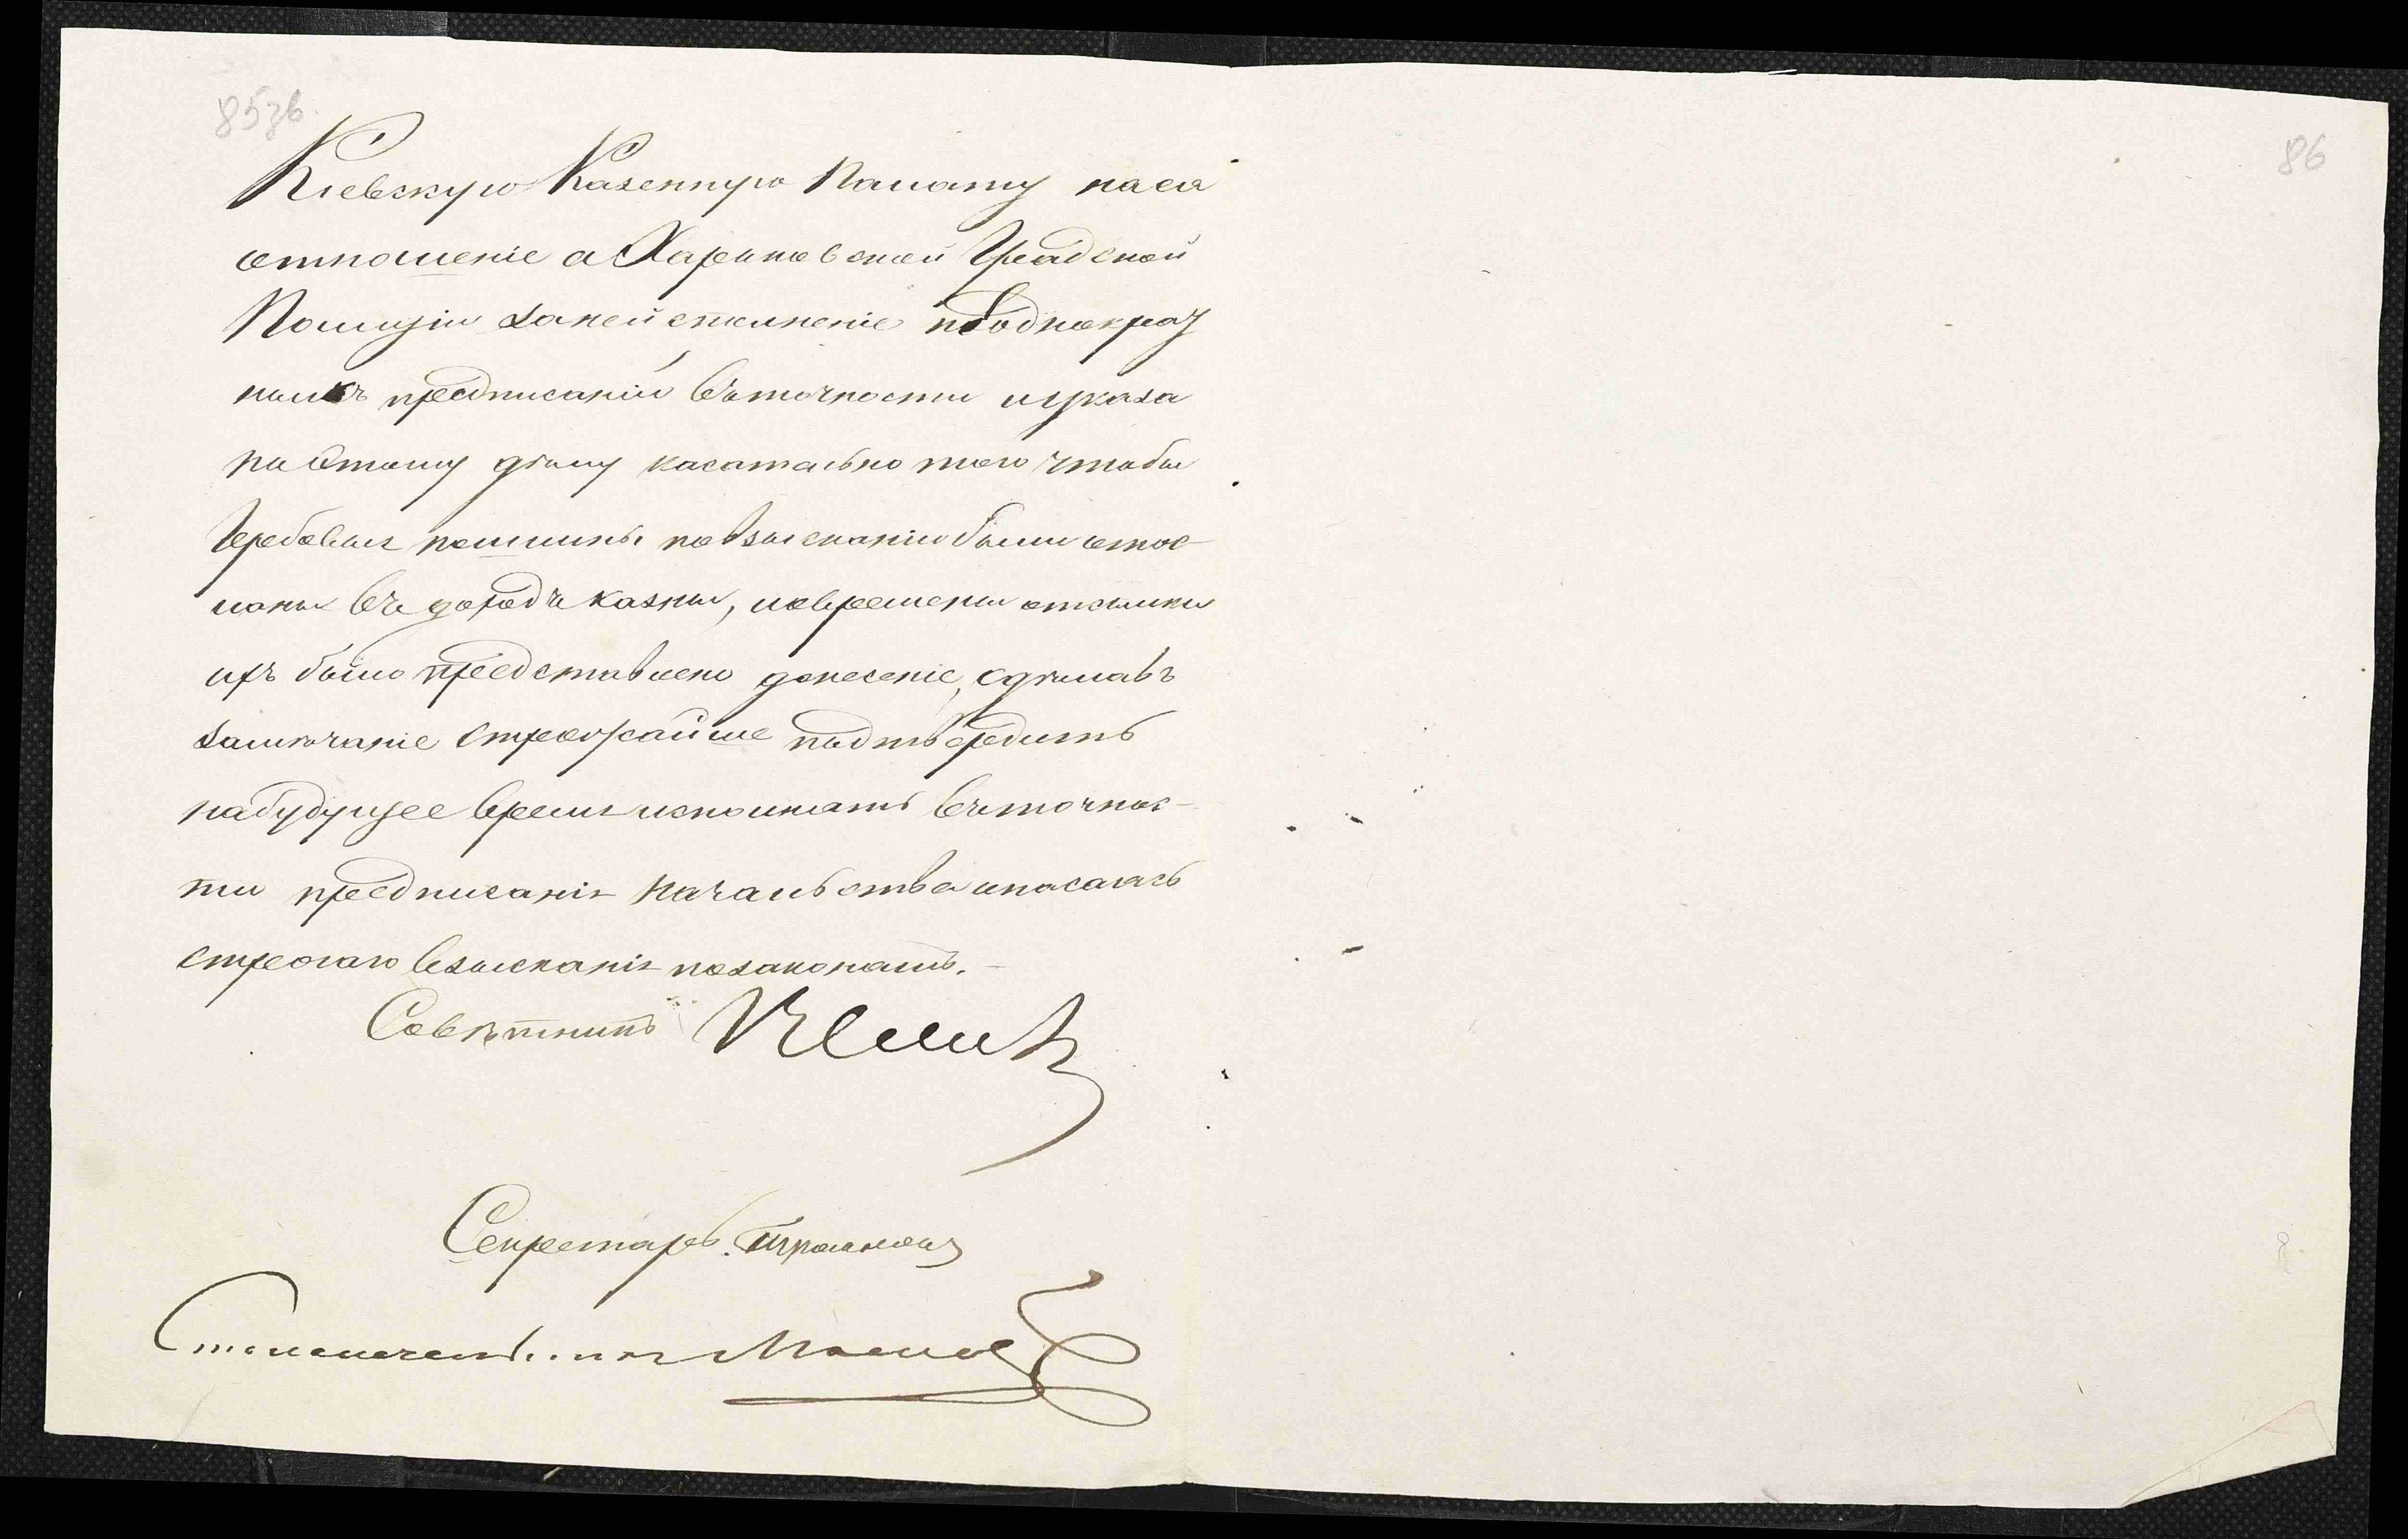 85зв.
86
Кіевскую Казенную Палату на ея
отношеніе а Харьковской Градской
Полиціи за неисполненіе неоднократ
ныхъ предписаній въ точности и указа
по етому дѣлу касательно того чтобы
Гербовыя пошлины по взысканіи были отос-
ланы въ доходъ казны, и о времени отсылки
ихъ было представлено донесеніе, сдѣлавъ
замѣчаніе строжайше подтвердить
на будущее время исполнять въ точнос-
ти предписанія Начальства опасаясь
строгаго взысканія по законамъ.
Совѣтникъ
Секретарь
Столоначальникъ